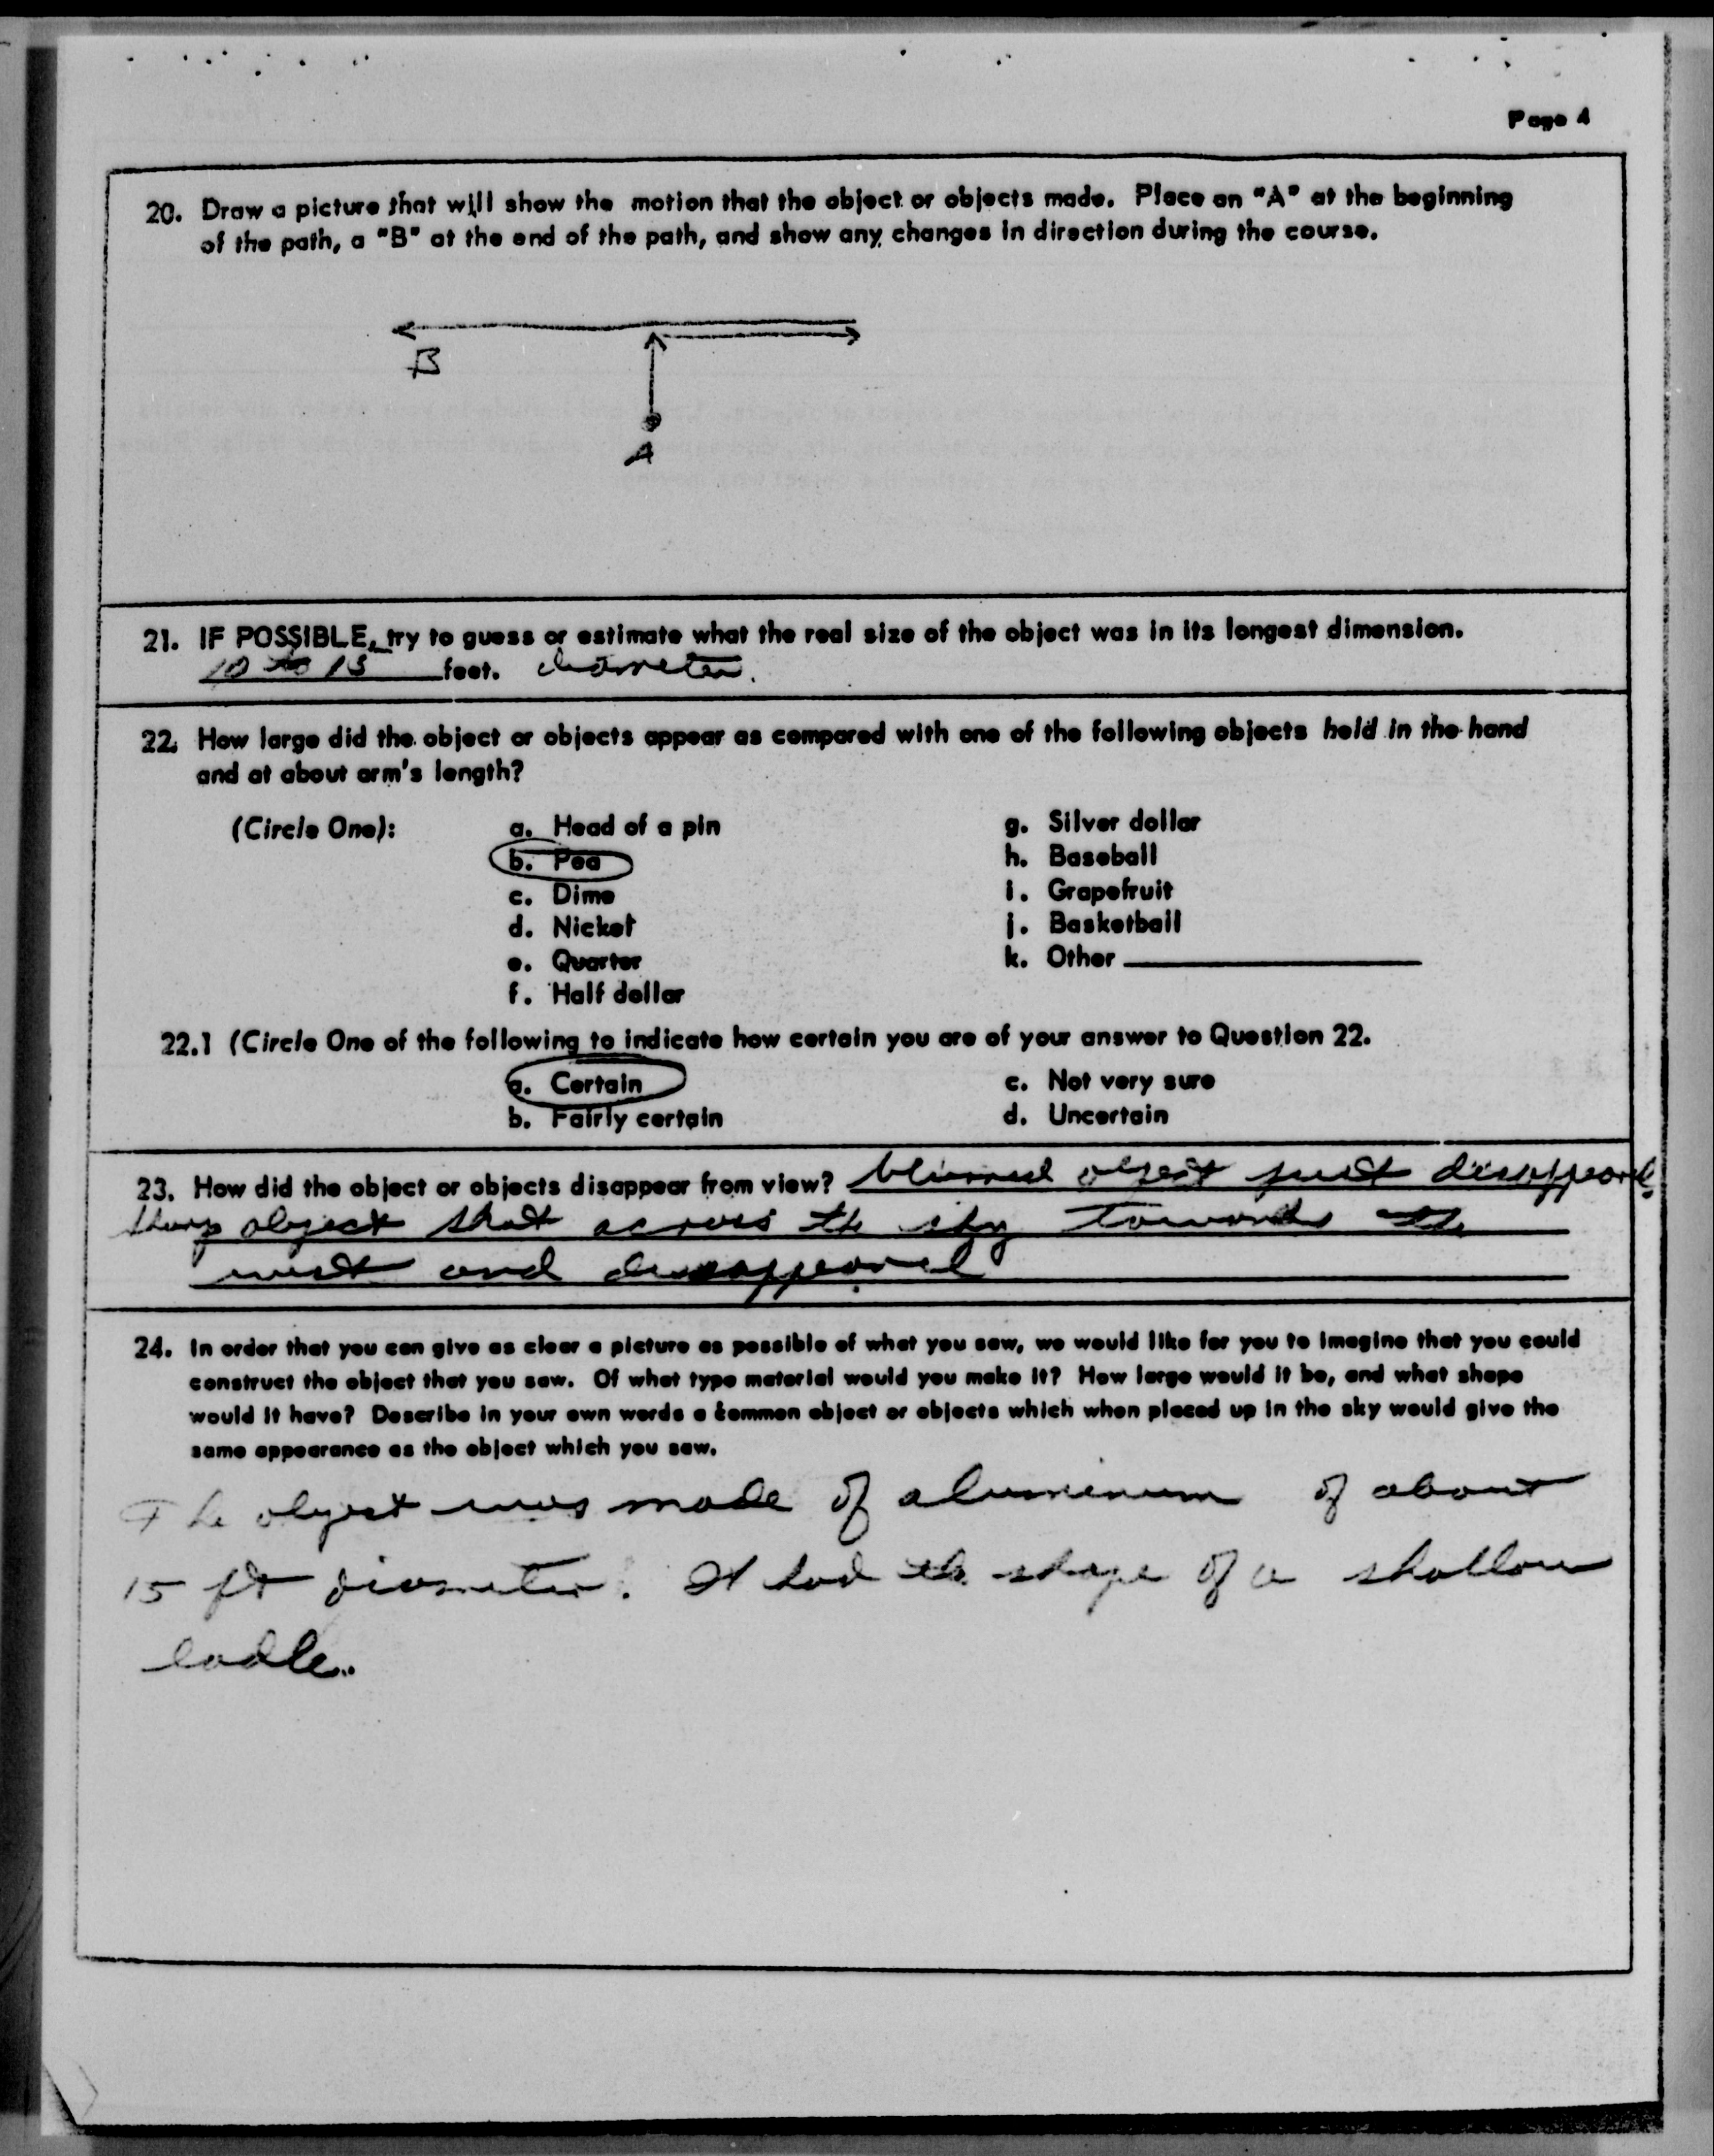 Page 4
20. Draw a picture that will show the motion that the object or objects made. Place an "A" at the beginning
of the path, a "B" at the end of the path, and show any changes in direction during the course.
B
A
21. IF POSSIBLE, try to guess or estimate what the real size of the object was in its longest dimension.
10 to 15 feet. diameter.
22. How large did the object or objects appear as compared with one of the following objects held in the hand
and at about arm's length?
(Circle One):
a. Head of a pin
b. Pea
c. Dime
d. Nickel
e. Quarter
f. Half dollar
g. Silver dollar
h. Baseball
i. Grapefruit
j. Basketball
k. Other
22.1 (Circle One of the following to indicate how certain you are of your answer to Question 22.
a. Certain
b. Fairly certain
c. Not very sure
d. Uncertain
23. How did the object or objects disappear from view? blurred object just disappeared.
sharp object shot across the sky towards the
west and disappeared
24. In order that you can give as clear a picture as possible of what you saw, we would like for you to imagine that you could
construct the object that you saw. Of what type material would you make it? How large would it be, and what shape
would it have? Describe in your own words a common object or objects which when placed up in the sky would give the
same appearance as the object which you saw.
The object was made of aluminum of about
15 ft diameter. It had the shape of a shallow
ladle.